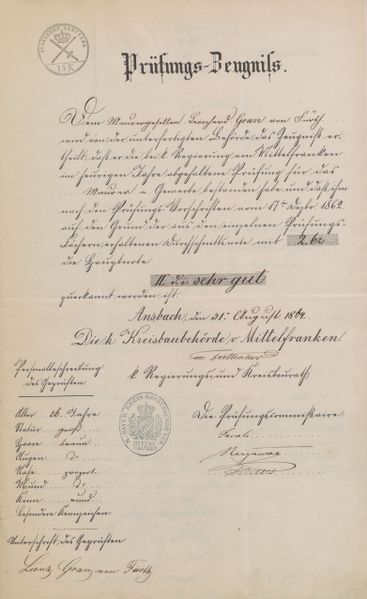 15 K
Prüfungs-Zeugniß.
Dem Maurergesellen Leonhard Gran von Fürth
wird von der unterfertigten Behörde das Zeugniß er-
theilt, daß er die bei k. Regierung von Mittelfranken
im heurigen Jahre abgehaltene Prüfung für das
Maurer - Gewerbe bestanden habe und daß ihm
nach den Prüfungs-Vorschriften vom 17ten Dezbr 1862
auf den Grund der aus den einzelnen Prüfungs-
fächern erhaltenen Durchschnittsnote mit 2.62
die Hauptnote
II die sehr gut
zuerkannt worden ist.
Ansbach, den 31. August 1864.
Die k. Kreisbaubehörde v. Mittelfranken.
k. Regierungs und Kreisbaurath.
Personalbeschreibung
des Geprüften
Alter 26 Jahre
Statur groß
Haare braun
Augen do
Nase proport.
Mund do
Kinn rund
Besondere Kennzeichen
Die Prüfungscommissaire.
MITTEL
FRANKEN
Unterschrift des Geprüften
Leonh Gran von Fürth